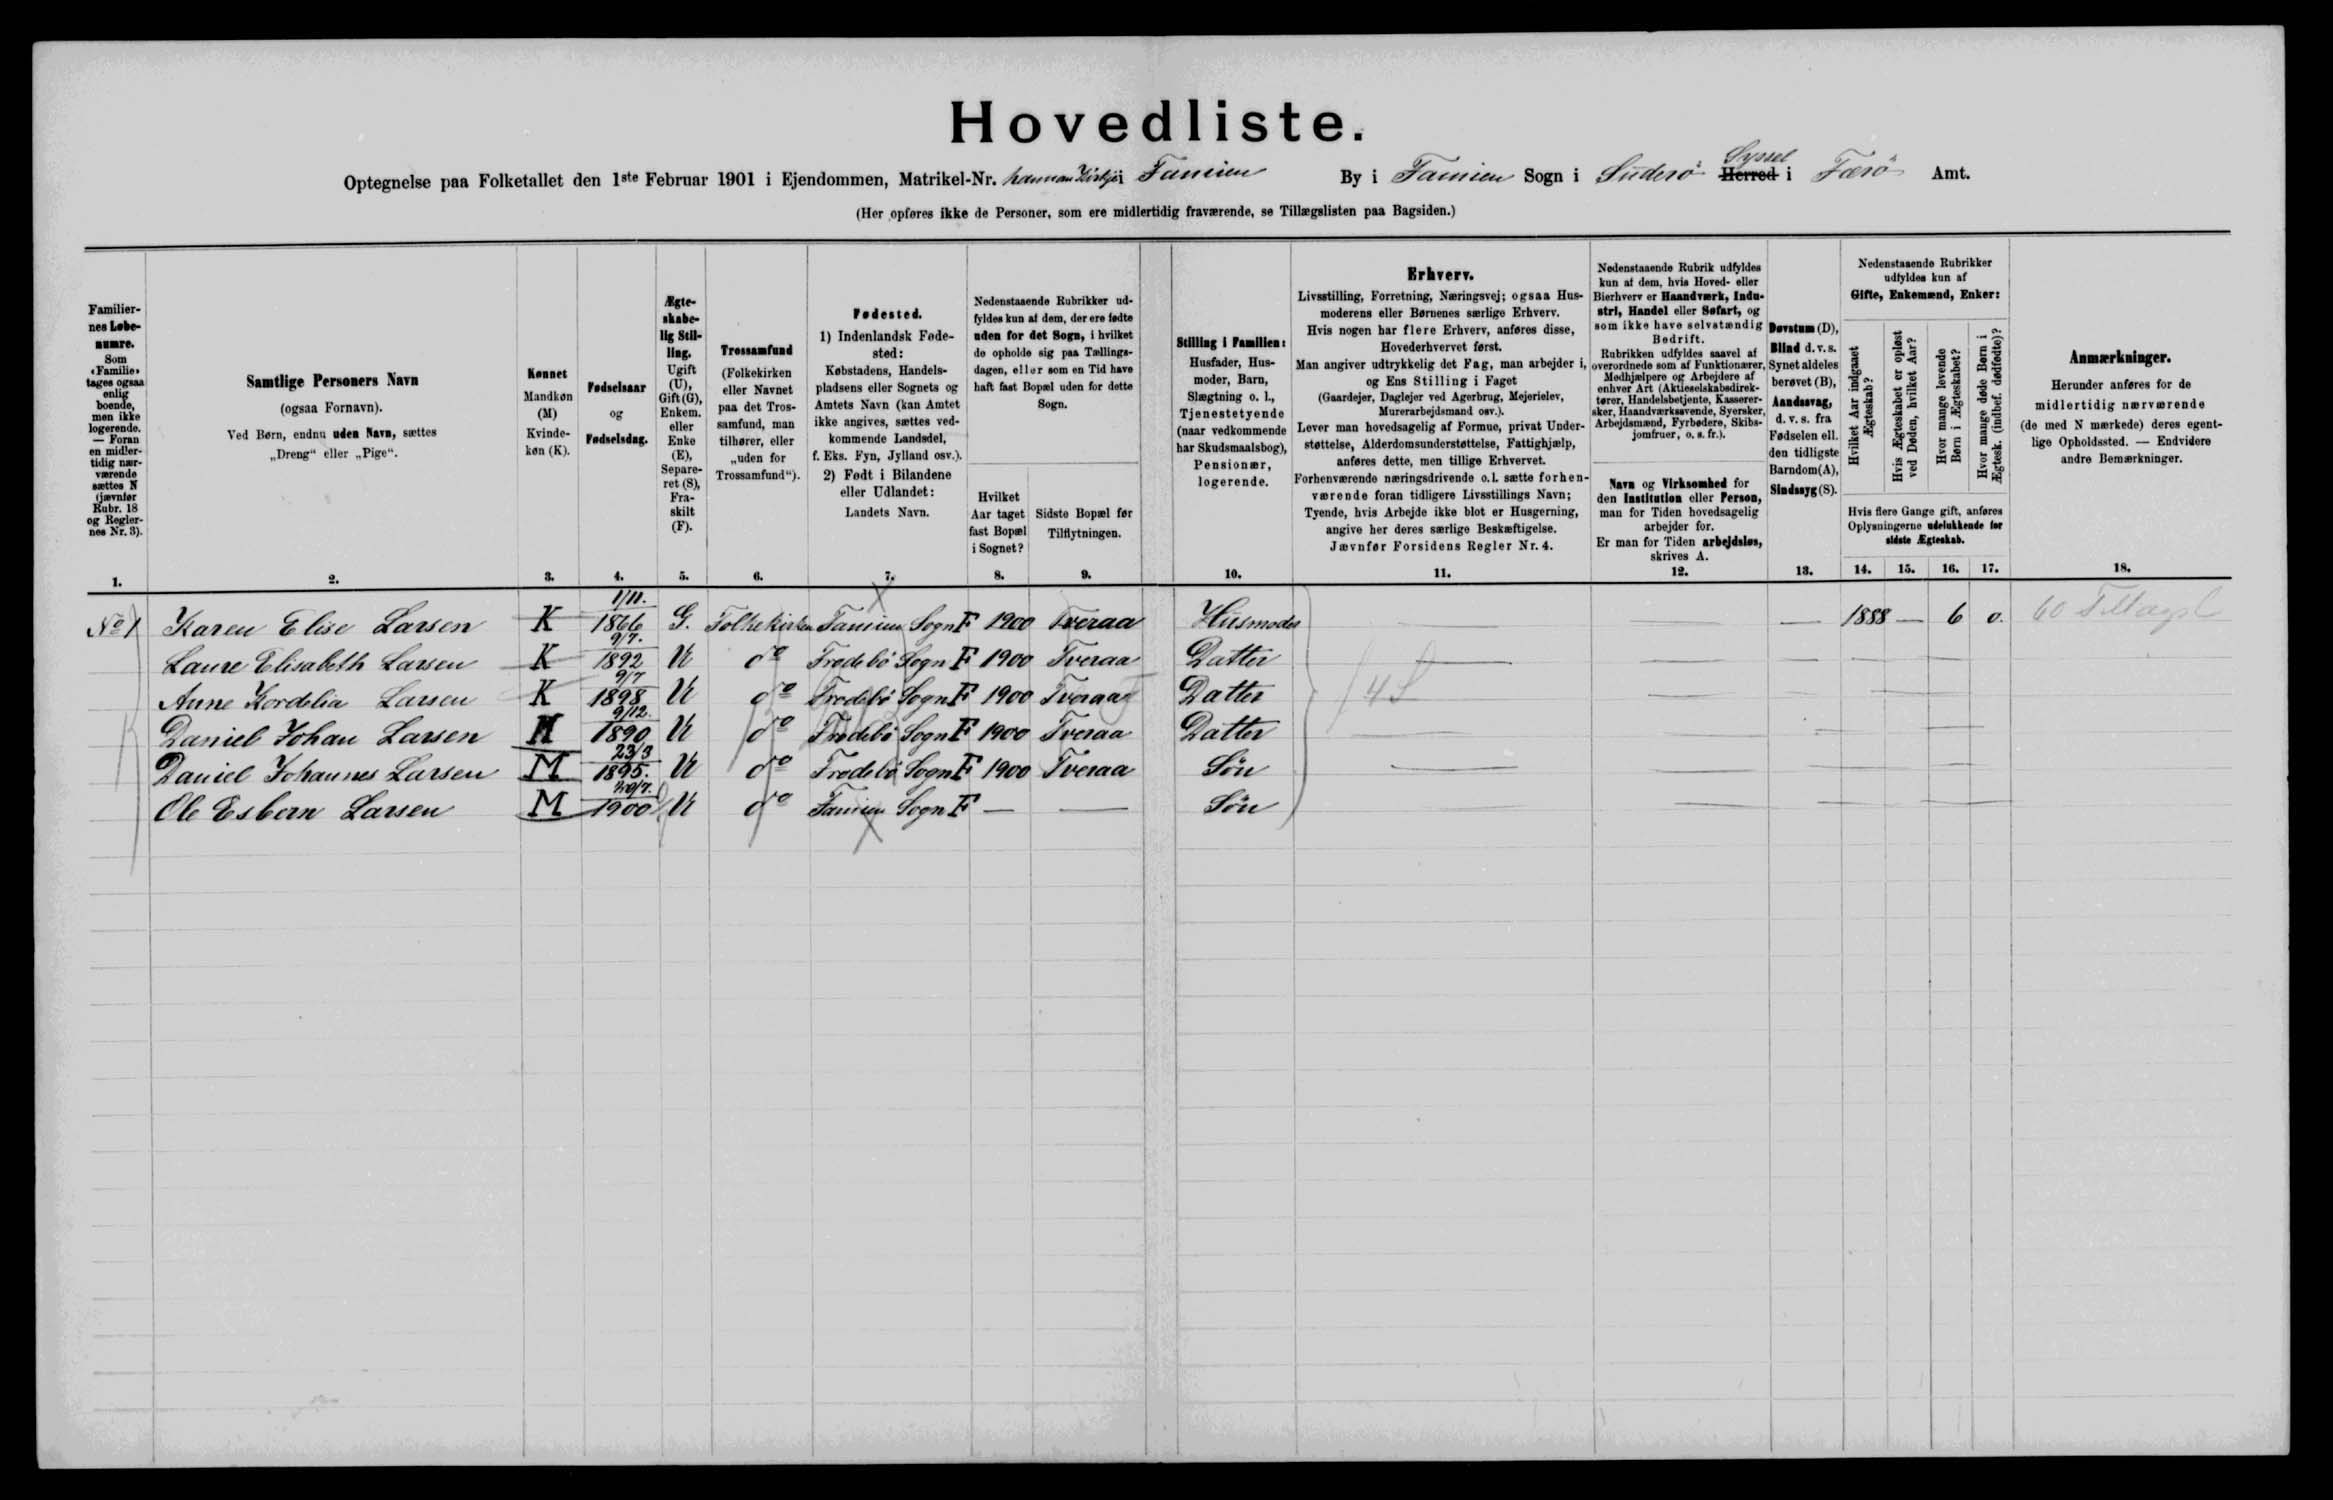 Hovedliste.
Optegnelse paa Folketallet den 1ste Februar 1901 i Ejendommen, Matrikel-Nr. hannan Kirkje i Famien By i Famien Sogn i Süderö Syssel Herred i Færö Amt.
(Her opføres ikke de Personer, som ere midlertidig fraværende, se Tillægslisten paa Bagsiden.)
Familier-
nes Løbe-
numre.
Som
«Familie»
tages ogsaa
enlig
boende,
men ikke
logerende.
— Foran
en midler-
tidig nær-
værende
sættes N
(jævnfør
Rubr. 18
og Regler-
nes Nr. 3).
1.
Samtlige Personers Navn
(ogsaa Fornavn).
Ved Børn, endnu uden Navn, sættes
„Dreng“ eller „Pige“.
2.
Kønnet
Mandkøn
(M)
Kvinde-
køn (K).
3.
Fødselsaar
og
Fødselsdag.
4.
Ægte-
skabe-
lig Stil-
ling.
Ugift
(U),
Gift (G),
Enkem.
eller
Enke
(E),
Separe-
ret (S),
Fra-
skilt
(F).
5.
Trossamfund
(Folkekirken
eller Navnet
paa det Tros-
samfund, man
tilhører, eller
„uden for
Trossamfund“).
6.
Fødested.
1) Indenlandsk Føde-
sted:
Købstadens, Handels-
pladsens eller Sognets og
Amtets Navn (kan Amtet
ikke angives, sættes ved-
kommende Landsdel,
f. Eks. Fyn, Jylland osv.).
2) Født i Bilandene
eller Udlandet:
Landets Navn.
7.
Nedenstaaende Rubrikker ud-
fyldes kun af dem, der ere fødte
uden for det Sogn, i hvilket
de opholde sig paa Tællings-
dagen, eller som en Tid have
haft fast Bopæl uden for dette
Sogn.
Hvilket
Aar taget
fast Bopæl
i Sognet?
8.
Sidste Bopæl før
Tilflytningen.
9.
Stilling i Familien:
Husfader, Hus-
moder, Barn,
Slægtning o. l.,
Tjenestetyende
(naar vedkommende
har Skudsmaalsbog),
Pensionær,
logerende.
10.
Erhverv.
Livsstilling, Forretning, Næringsvej; ogsaa Hus-
moderens eller Børnenes særlige Erhverv.
Hvis nogen har flere Erhverv, anføres disse,
Hovederhvervet først.
Man angiver udtrykkelig det Fag, man arbejder i,
og Ens Stilling i Faget
(Gaardejer, Daglejer ved Agerbrug, Mejerielev,
Murerarbejdsmand osv.).
Lever man hovedsagelig af Formue, privat Under-
støttelse, Alderdomsunderstøttelse, Fattighjælp,
anføres dette, men tillige Erhvervet.
Forhenværende næringsdrivende o. l. sætte forhen-
værende foran tidligere Livsstillings Navn;
Tyende, hvis Arbejde ikke blot er Husgerning,
angive her deres særlige Beskæftigelse.
Jævnfør Forsidens Regler Nr. 4.
11.
Nedenstaaende Rubrik udfyldes
kun af dem, hvis Hoved- eller
Bierhverv er Haandværk, Indu-
stri, Handel eller Søfart, og
som ikke have selvstændig
Bedrift.
Rubrikken udfyldes saavel af
overordnede som af Funktionærer,
Medhjælpere og Arbejdere af
enhver Art (Aktieselskabsdirek-
tører, Handelsbetjente, Kasserer-
sker, Haandværkssvende, Syersker,
Arbejdsmænd, Fyrbødere, Skibs-
jomfruer, o. s. fr.).
Navn og Virksomhed for
den Institution eller Person,
man for Tiden hovedsagelig
arbejder for.
Er man for Tiden arbejdsløs,
skrives A.
12.
Døvstum (D),
Blind d. v. s.
Synet aldeles
berøvet (B),
Aandssvag,
d. v. s. fra
Fødselen ell.
den tidligste
Barndom (A),
Sindssyg (S).
13.
Nedenstaaende Rubrikker
udfyldes kun af
Gifte, Enkemænd, Enker:
Hvilket Aar indgaaet
Ægteskab?
Hvis Ægteskabet er opløst
ved Døden, hvilket Aar?
Hvor mange levende
Børn i Ægteskabet?
Hvor mange døde Børn i
Ægtesk. (indbef. dødfødte)?
Hvis flere Gange gift, anføres
Oplysningerne udelukkende for
sidste Ægteskab.
14. 15. 16. 17.
Anmærkninger.
Herunder anføres for de
midlertidig nærværende
(de med N mærkede) deres egent-
lige Opholdssted. — Endvidere
andre Bemærkninger.
18.
No 1 Karen Elise Larsen K 1/11. 1866 G. Folkekirken Famien Sogn F 1900 Tveraa Husmoder — — — 1888 — 6 0.
Laure Elisabeth Larsen K 9/7. 1892 U do Frodebö Sogn F 1900 Tveraa Datter
Anne Kordelia Larsen K 9/7 1898 U do Frodebö Sogn F 1900 Tveraa Datter 4 S
Daniel Johan Larsen M 9/12. 1890 U do Frodebö Sogn F 1900 Tveraa Datter
Daniel Johannes Larsen M 23/3 1895. U do Frodebö Sogn F 1900 Tveraa Sön
Ole Esbern Larsen M 1900 U do Famien Sogn F — — Sön